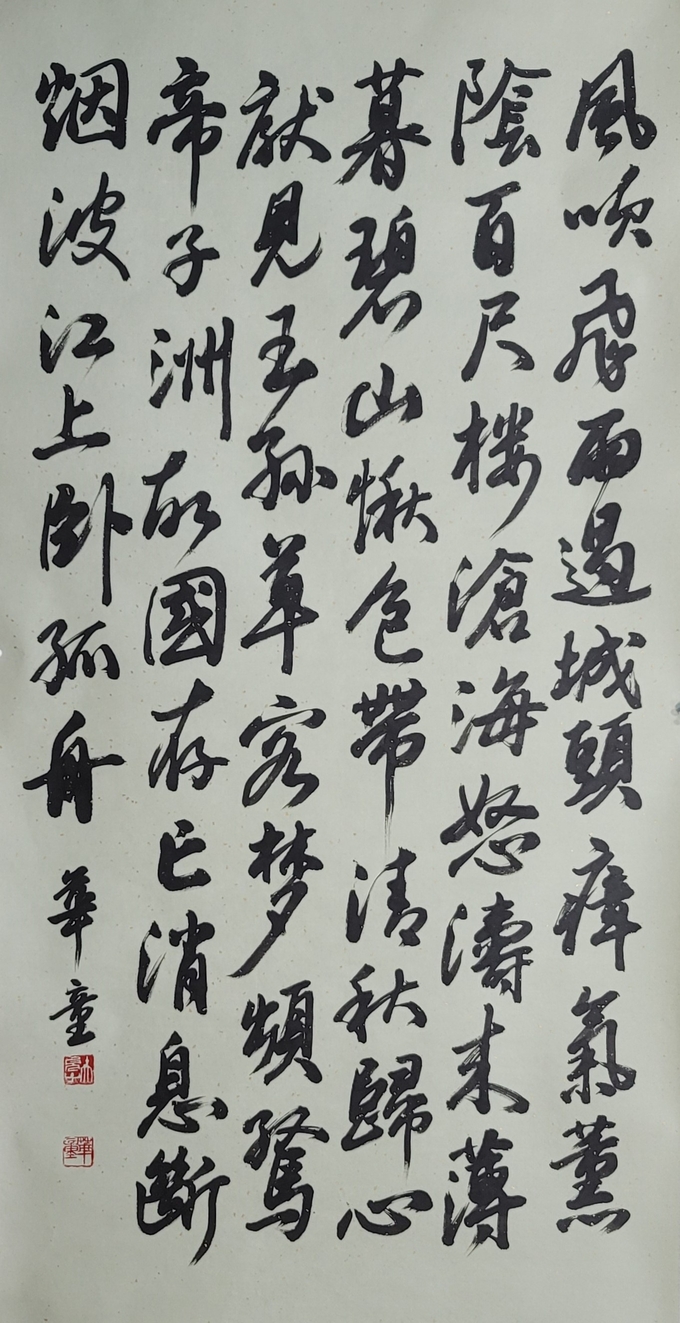 風吹飛雨過城頭瘴氣薰
陰百尺楼滄海怒濤来薄
暮碧山愀色帶清秋歸心
猒見王孫草客梦頻驚
帝子洲故國存亡消息斷
烟波江上卧孤舟
華童
華童